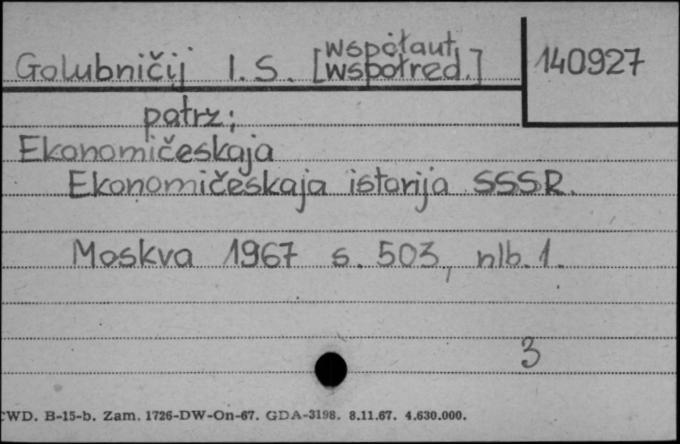 Golubničij I. S. [współaut.
wspołred.]
140927
patrz;
Ekonomičeskaja
Ekonomičeskaja istorija SSSR.
Moskva 1967 s. 503, nlb. 1.
3
CWD. B-15-b. Zam. 1726-DW-On-67. GDA-3198. 8.11.67. 4.630.000.